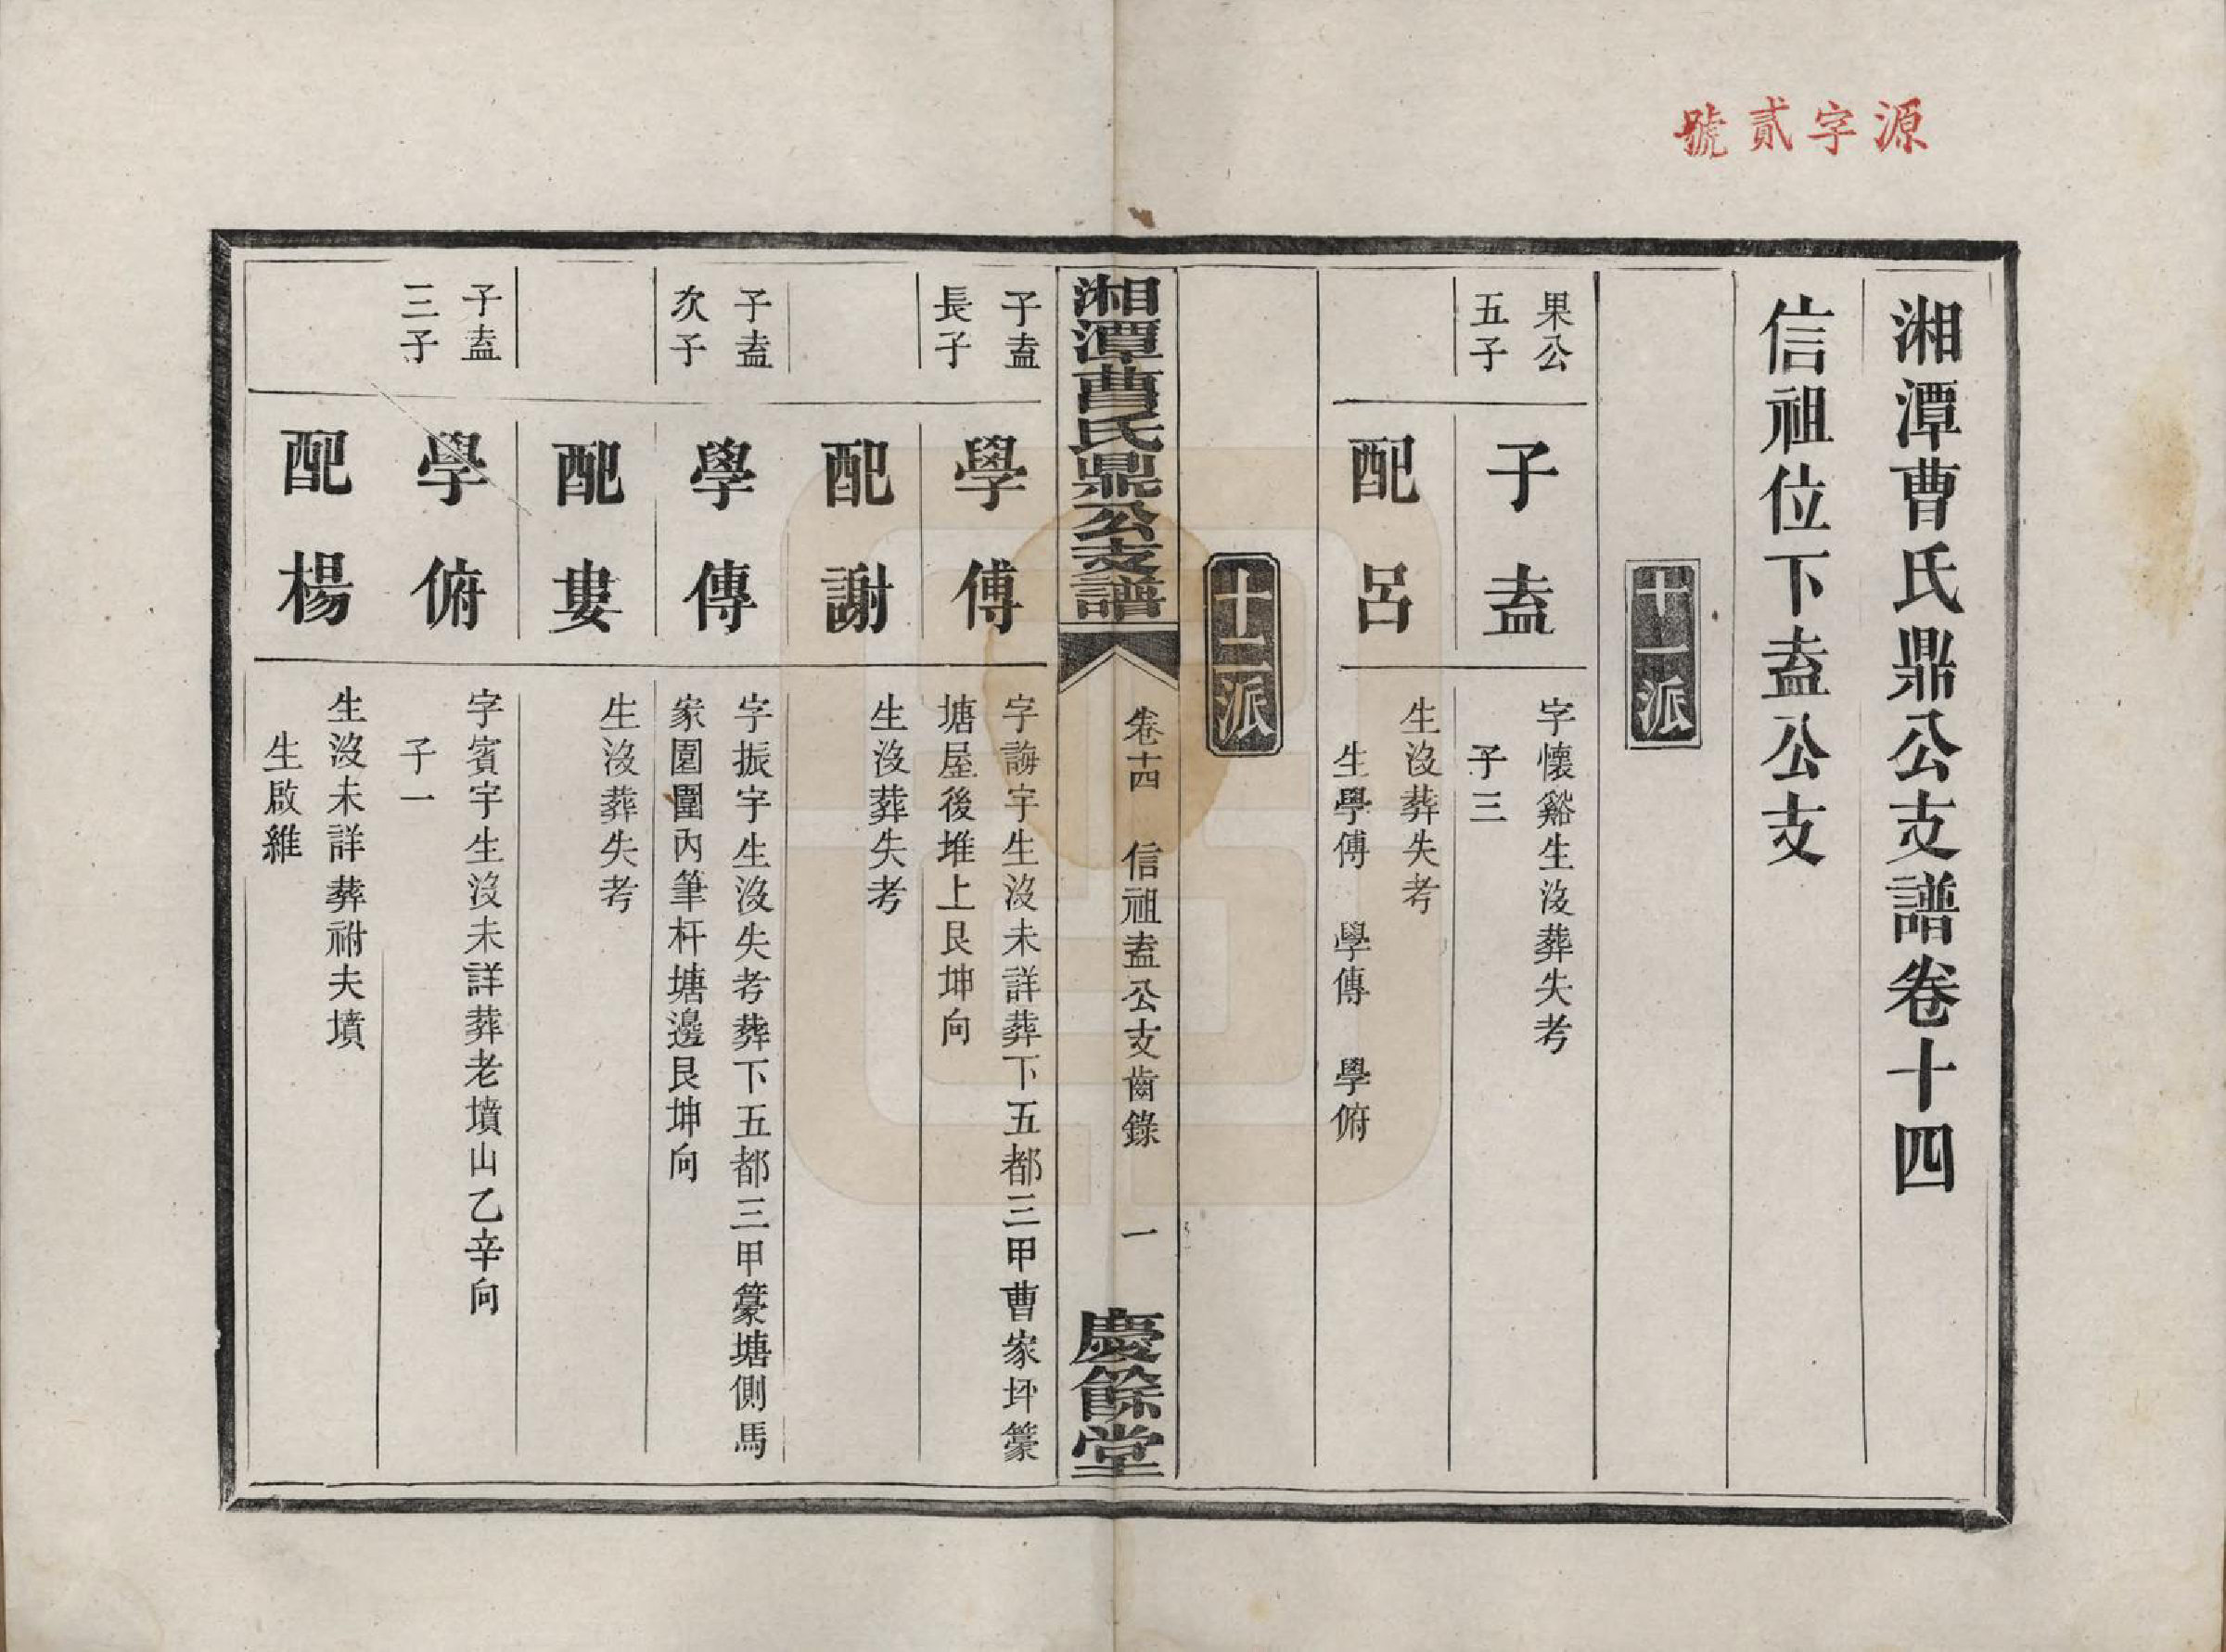 源字貳號
湘潭曹氏鼎公支譜卷十四
信祖位下盍公支
十一派
果公
五子
子盍
字懷谿生沒葬失考
子三
配呂
生沒葬失考
生學傅 學傳 學俯
十二派
湘潭曹氏鼎公支譜
卷十四 信祖盍公支齒錄 一
慶餘堂
子盍
長子
學傅
字誨宇生沒未詳葬下五都三甲曹家坪籇
塘屋後堆上艮坤向
配謝
生沒葬失考
子盍
次子
學傳
字振宇生沒失考葬下五都三甲籇塘側馬
家園圍內筆杆塘邊艮坤向
配婁
生沒葬失考
子盍
三子
學俯
字賓宇生沒未詳葬老墳山乙辛向
子一
配楊
生沒未詳葬祔夫墳
生啟維